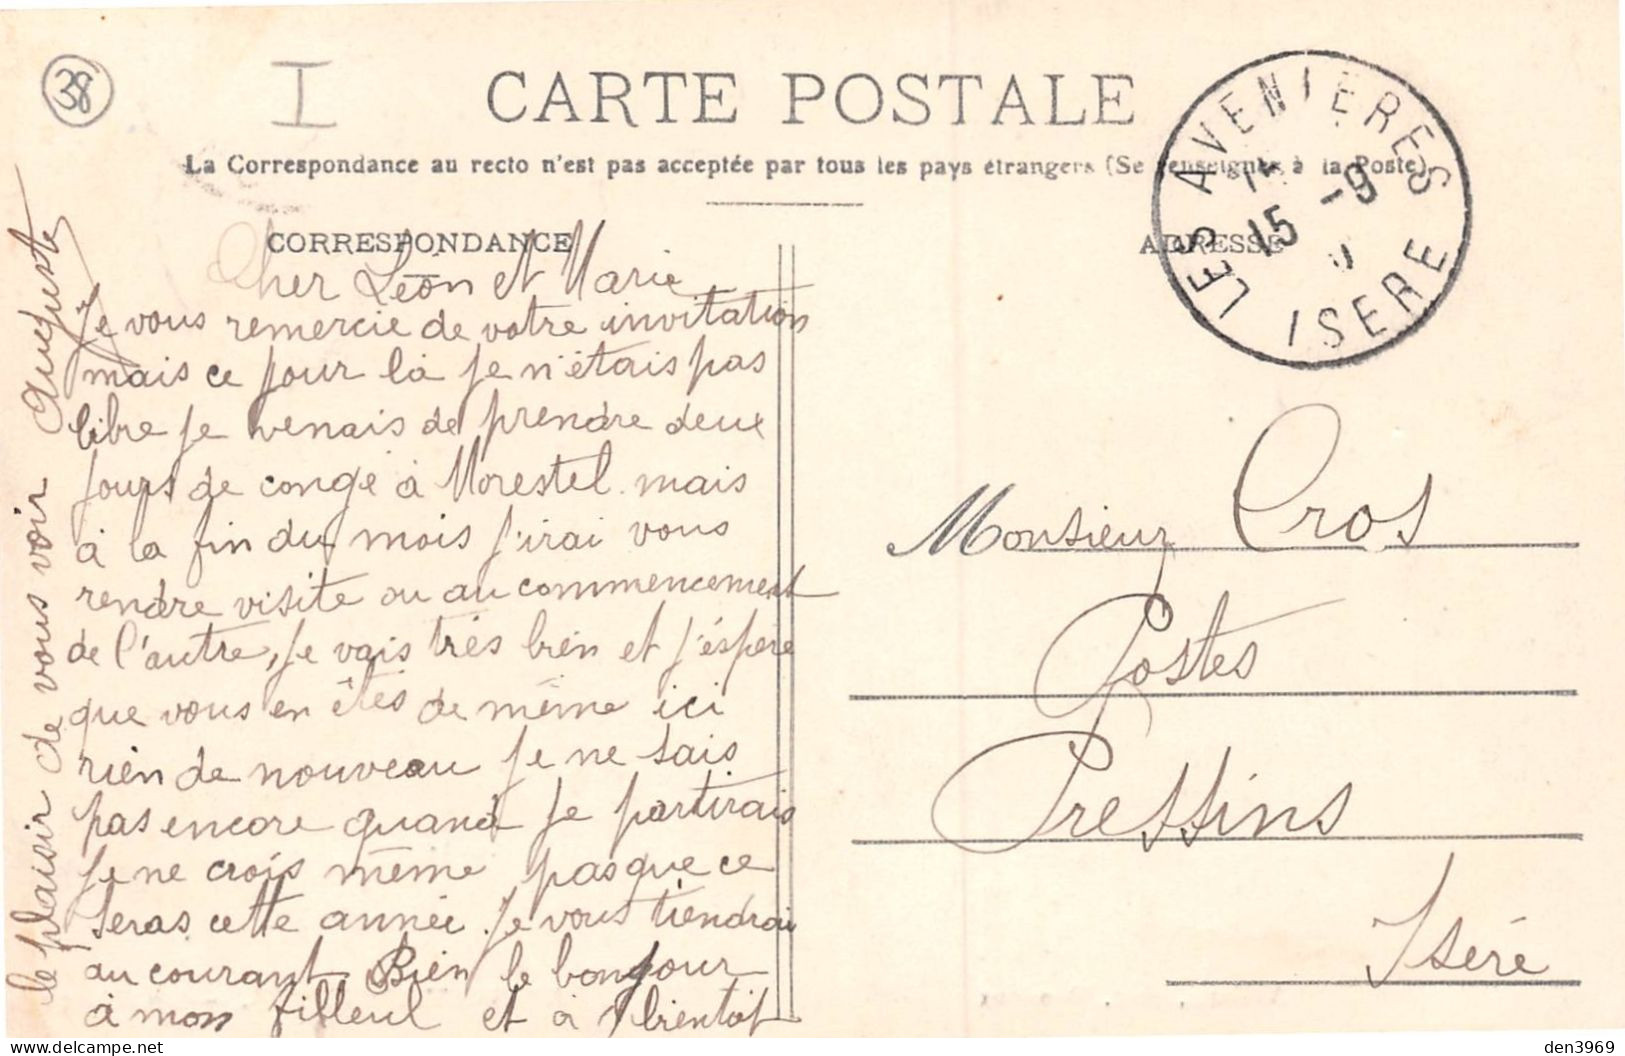 38
I
CARTE POSTALE
La Correspondance au recto n'est pas acceptée par tous les pays étrangers (Se renseigner à la Poste)
CORRESPONDANCE
ADRESSE
LES AVENIERES
15 -9
ISERE
Cher Léon et Marie
Je vous remercie de votre invitation
mais ce jour là je n'étais pas
libre je venais de prendre deux
jours de congé à Morestel mais
à la fin du mois j'irai vous
rendre visite ou au commencement
de l'autre, je vais très bien et j'éspère
que vous en êtes de même ici
rien de nouveau je ne sais
pas encore quand je partirais
je ne crois même pas que ce
seras cette année. Je vous tiendrai
au courant. Bien le bonjour
à mon filleul et à bientôt
le plaisir de vous voir Auguste
Monsieur Cros
Postes
Pressins
Isère
den3969